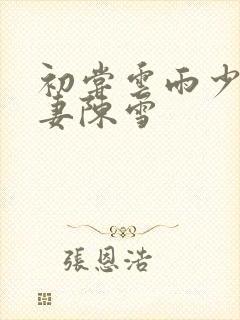 初嘗雲雨少
妻陳雪
張恩浩